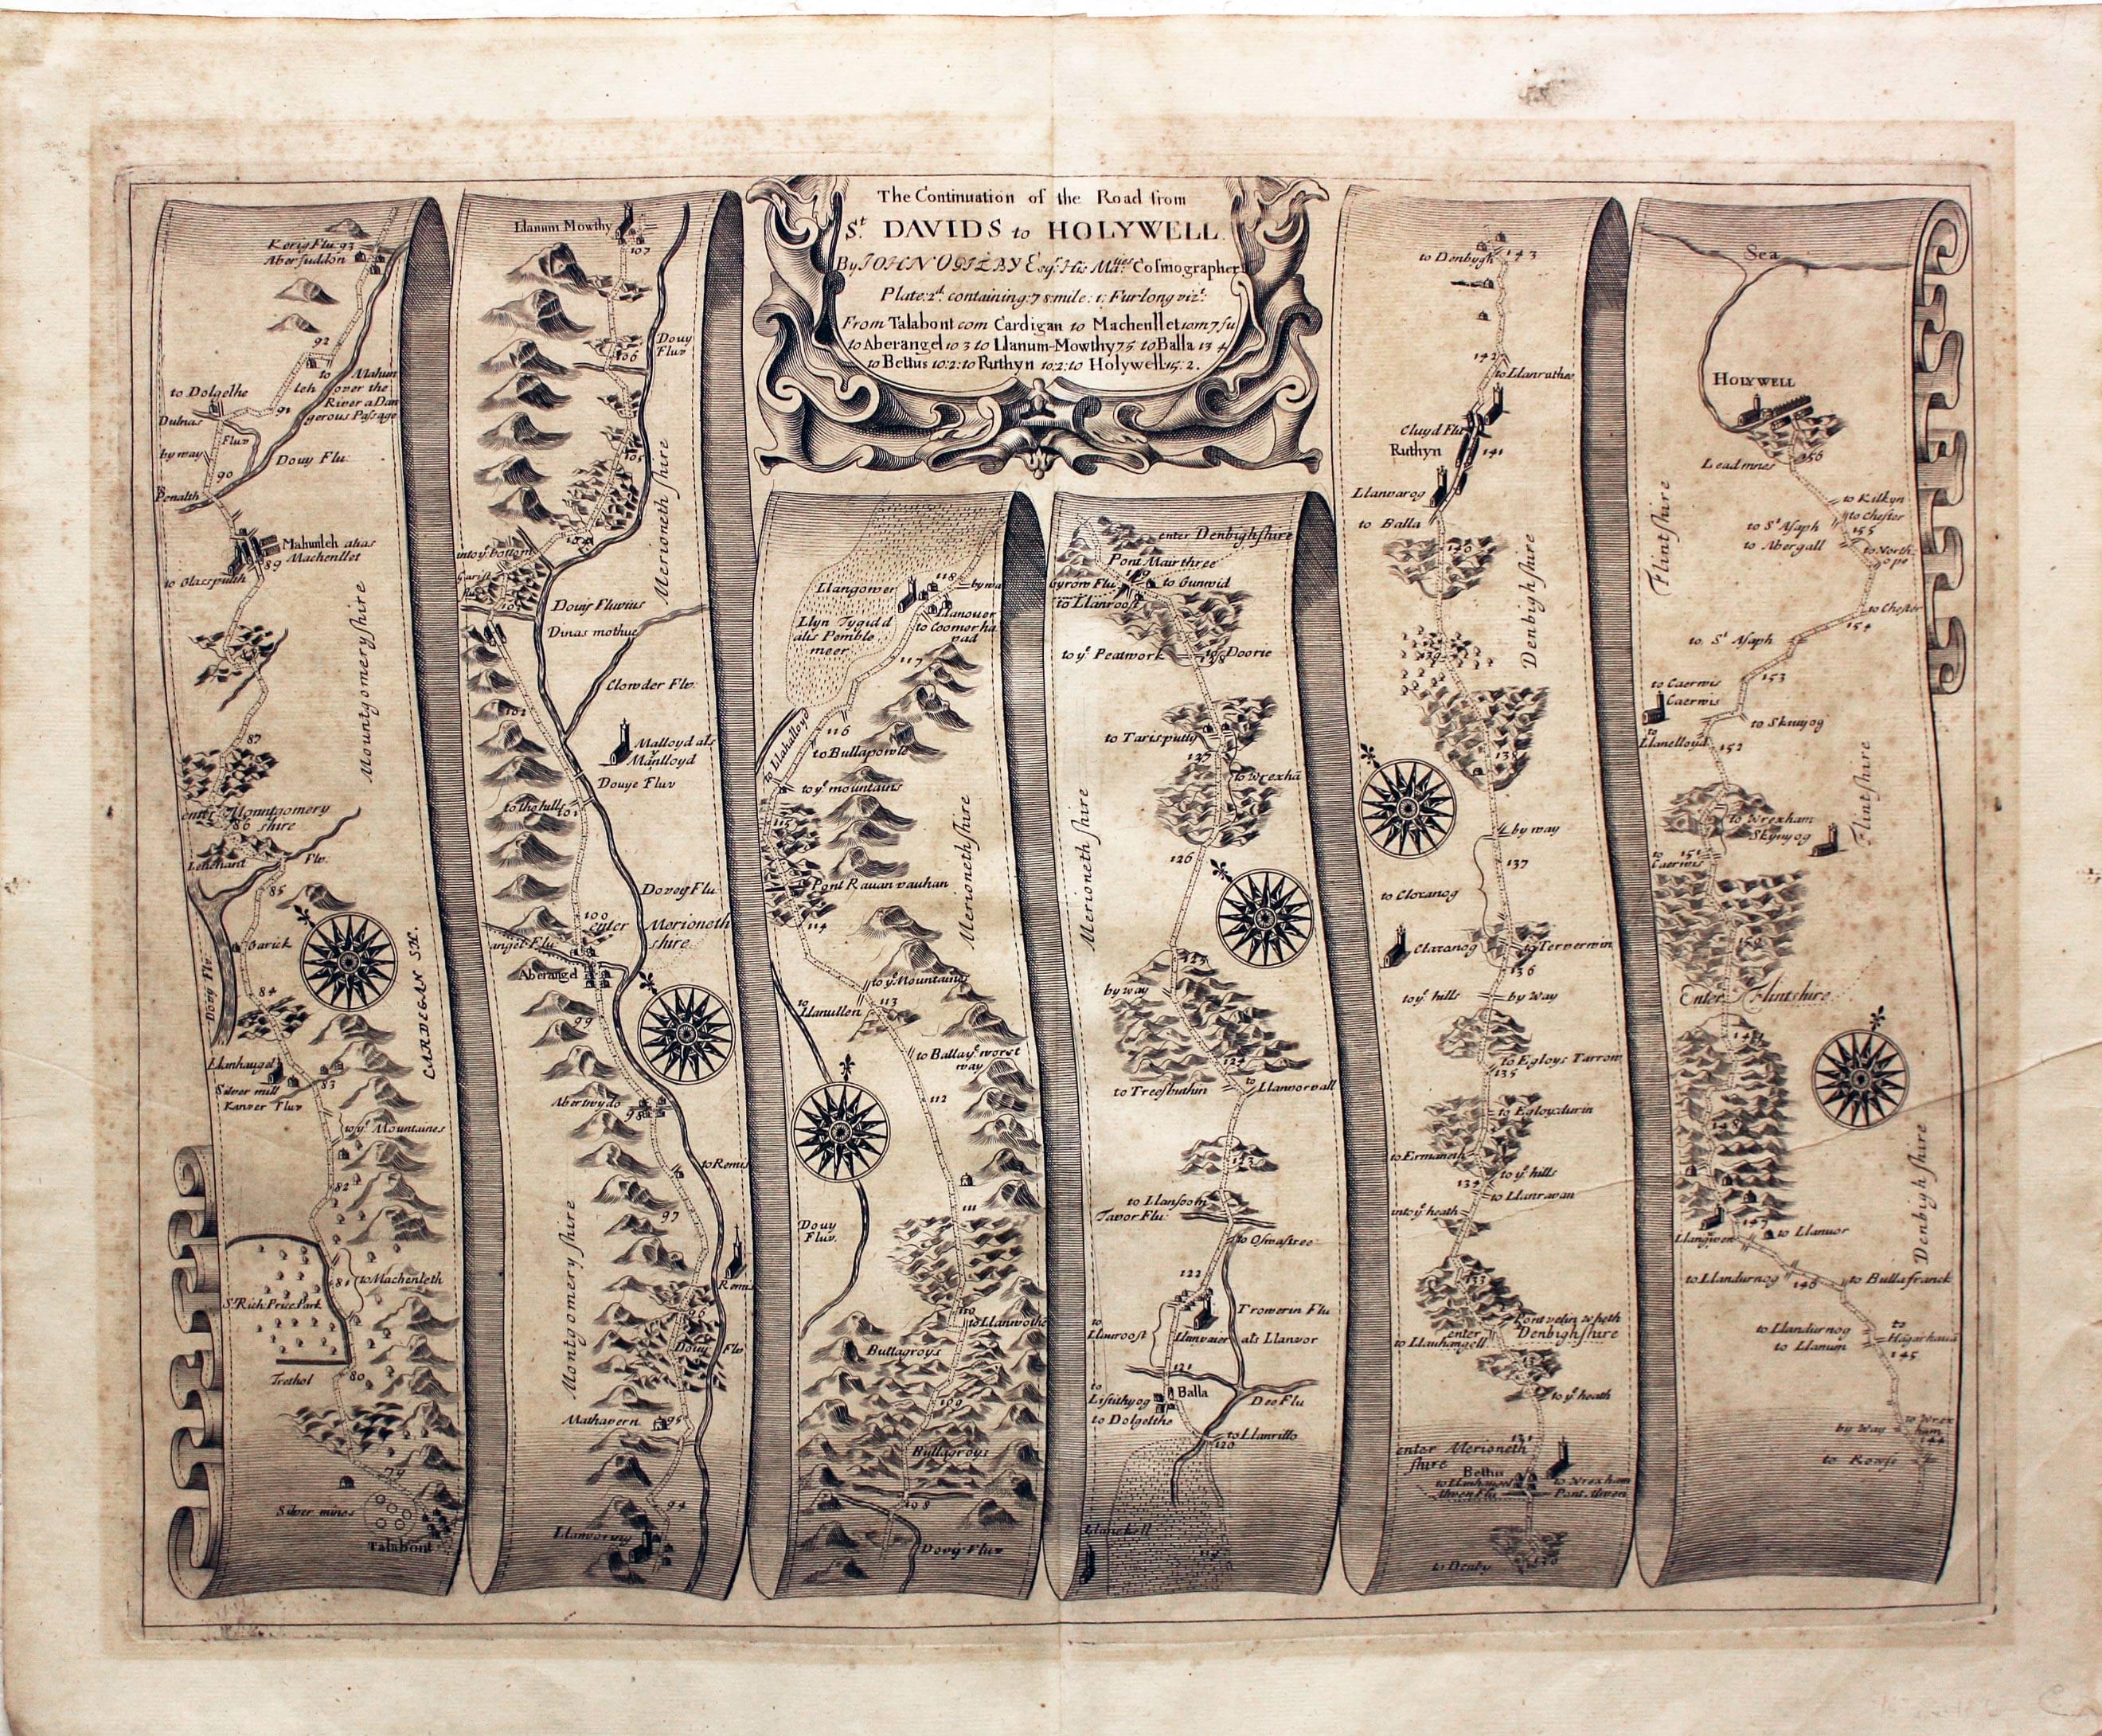 The Continuation of the Road from
St. DAVIDS to HOLYWELL
By JOHN OGILBY Esqr. His Maties. Cosmographer
Plate: 2d. containing: 78 mile: 1: Furlong vizt:
From Talabont com Cardigan to Machenllet 10m 7fu
to Aberangel 10 3 to Llanum-Mowthy 7 5 to Balla 13 4
to Bettus 10:2: to Ruthyn 10:2: to Holywell 15:2.
Kerig Flu 93
Abersuddon
92
to Mahun
leh over the
River a Dan
gerous Passage
to Dolgelhe
91
Dulnas
Fluv
by way
Douy Flu:
90
Penalth
Mahunleh alias
Machenllet
89
to Glasspulth
Mountgomeryshire
87
enter Mountgomery
86 shire
Lenehant Flv.
85
Garick
Dovy Flv.
84
CARDEGAN SH.
Llanhaugel
83
Silver mill
Kanver Fluv
to ye Mountaines
82
81
to Machenleth
Sr. Rich Price Park
Trethol
80
79
Silver mines
Talabont
Llanum Mowthy
107
Douy
Fluv
106
105
Merioneth shire
into ye bottom
104
Garist
flu
103
Douy Fluvius
Dinas mothue
Clowder Flv.
102
Malloyd als
Manlloyd
Douye Fluv
to the hills
101
Dovey Flu
100
enter Merioneth
shire
angel Flu
Aberangel
99
Abertwydo
98
to Remis
97
Remis
Montgomery shire
96
Douy Flv
Mathavern
95
94
Llanvoring
Dovy Fluv
Llangower
118
by wa
Llanouer
to Coomerha
vad
Llyn Tygidd
alis Pemble
meer
117
116
to Llahalloyd
to Bullapowle
to ye mountains
115
Pont Rauan vauhan
114
Merionethshire
to ye Mountains
to
Llanullen
113
to Balla ye worst
way
112
111
Douy
Fluv.
110
to Llanwothe
Buttagroys
109
Bullagroys
108
Dovy Fluv
enter Denbighshire
Pont Mair three
Gyrow Flu
129
to Gunwid
to Llanroost
to ye Peatwork
to Doorie
128
to Tarisputty
127
to Wrexha
126
Merioneth shire
125
by way
124
to Treesbuthin
to
Llanvorvall
123
to Llansooth
Tavor Flu:
to Oswastree
122
Trowerin Flu
to
Llanroost
Llanvaier als Llanvor
121
to
Listithyog
Balla
Dee Flu
to Dolgelthe
to Llanrillo
120
Llanekell
119
to Denbygh
143
142
to Llanruthee
Cluyd Flu
Ruthyn
141
Llanvarog
to Balla
140
Denbigh shire
139
138
by way
137
to Cloxanog
Claxanog
to Terverwin
136
to ye hills
by Way
to Egloys Tarrow
135
to Egloysdurin
to Ermaneth
to ye hills
134
to Llanravan
into ye heath
133
Pont velin wheth
enter Denbighshire
to Llanhangell
132
to ye heath
131
enter Merioneth
shire
Bettus
to Llanhangel
to Wrexham
Alwen Flu
Pont Alwen
to Denby
130
Sea
HOLYWELL
156
Lead mines
to Kilkyn
to Chester
to St Asaph
155
to Abergall
to North
ope
Flintshire
to Chester
154
to St Asaph
153
to Caerwis
Caerwis
to Skinyog
to
Llanelloyd
152
to Wrexham
Skynyog
Flintshire
to
Caerwis
151
150
Enter Flintshire
149
148
147
Llangwen
to Llanuor
Denbigh shire
to Llandurnog
146
to Bullafranck
to Llandurnog
to
Hagarhaua
to Llanum
145
by Way
to Wrex
ham
144
to Rowse